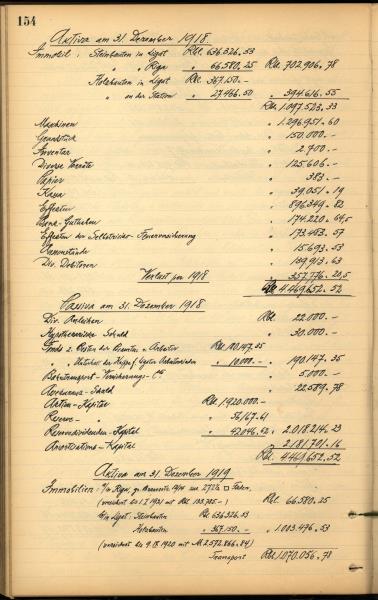 154
Aktiva am 31. Dezember 1918.
Immobil: Steinbauten in Ligat Rbl. 636.326.53
" " Riga " 66.580.25 Rbl. 702906.78
Holzbauten in Ligat Rbl. 367.150.-
" an der Station " 27466.50 " 394616.55
Rbl. 1.097.523.33
Maschinen " 1.296.951.60
Grundstück " 150.000.-
Inventar " 2.700.-
Diverse Vorräte " 125.606.-
Papier " 383.-
Kassa " 39.051.19
Effekten " 896.349.82
Bank-Guthaben " 174.220.64,5
Effekten der Selbstrisiko-Feuerversicherung " 173.453.57
" 15.693.53
Div. Debitoren " 139.913.63
Verlust pro 1918 " 357.776.20,5
Rbl. 4.469.652.52
Passiva am 31. Dezember 1918
Div. Anleihen Rbl. 22.000.-
Hypothekarische Schuld " 30.000.-
Fonds z. Besten der Beamten u. Arbeiter Rbl. 180.147.25
" " 10.000.- " 190.147.25
Versicherungs- " 5.000.-
" 22.589.78
Aktien-Kapital Rbl. 1.920.000.-
Reserve- " " 56.167.61
Reservedividenden-Kapital " 42046.62 " 2.018.214.23
Amortisations-Kapital " 2.181.701.16
Rbl. 4469652.52
Aktiva am 31. Dezember 1919
Immobilien: in Riga, Rbl. 66.580.25
b) in Ligat: Steinbauten Rbl. 636326.53
Holzbauten " 367.150.- " 1.003.476.53
(versichert bis 9.IX.1920 mit M. 2.572.866.84)
Transport Rbl. 1.070.056.78